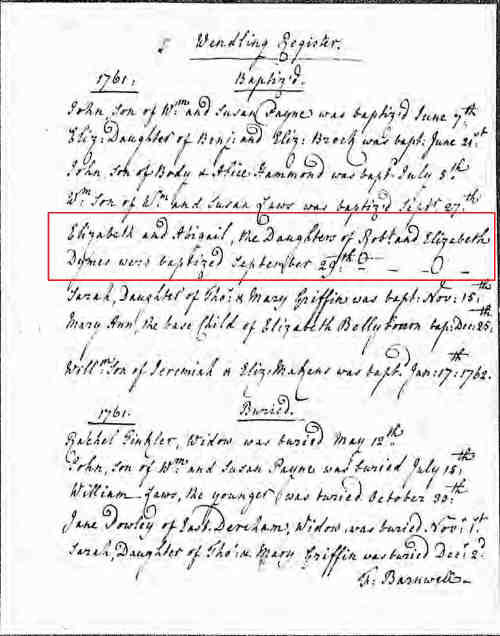 Wendling Register.
1761. Baptiz'd.
John, Son of Wm. and Susan Payne was baptiz'd June 7th
Eliz: Daughter of Benj: and Eliz: Brock was bapt: June 21st
John, Son of Body & Alice Hammond was bapt. July 5th
Wm. Son of Wm. and Susan Laws was baptiz'd Septr. 27th
Elizabeth and Abigail, the Daughters of Robt. and Elizabeth
Dymes were baptized September 29th
Sarah, Daughter of Tho: & Mary Griffin was bapt: Nov: 15th
Mary Ann, the base Child of Elizabeth Bellybown bap: Dec: 25.
Willm. Son of Jeremiah & Eliz: Makens was bapt. Jan: 17th: 1762.
1761. Buried.
Rachel Tinkler, Widow was buried May 12th
John, Son of Wm. and Susan Payne was buried July 15th
William Laws, the younger was buried October 30th
Jane Dowley of East Dereham, Widow was buried Novr. 1st
Sarah, Daughter of Tho: & Mary Griffin was buried Decr. 2d
Barnwell